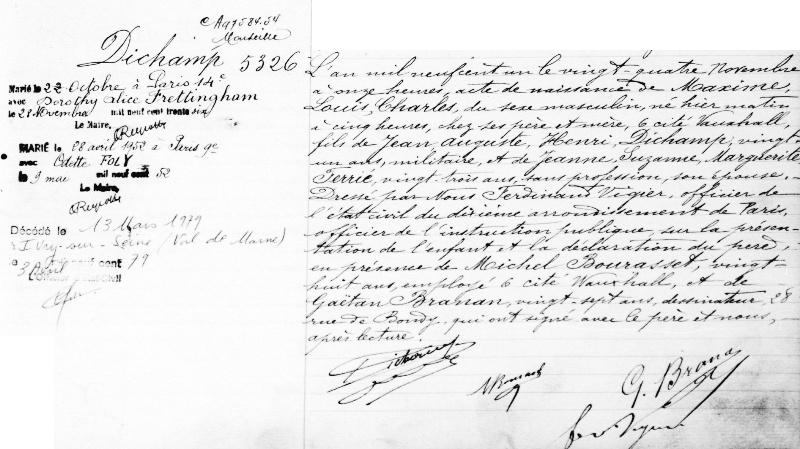 Marseille
Dichamp 5326
Marié le 22 Octobre à Paris 14e
avec Dorothy Alice Frettingham
le 28 Novembre mil neuf cent trente six
Le Maire,
MARIÉ le 28 avril 1952 à Paris 9e
avec Odette FOLY
le 9 mai mil neuf cent 52
Le Maire,
Décédé le 13 Mars 1979
à Ivry-sur-Seine (Val de Marne)
le 3 Avril cent 79
L'an mil neuf cent un le vingt-quatre Novembre
à onze heures, acte de naissance de Maxime,
Louis, Charles, du sexe masculin, né hier matin
à cinq heures, chez ses père et mère, 6 cité Vauxhall,
fils de Jean, Auguste, Henri, Dichamp, vingt-
un ans, militaire, et de Jeanne, Suzanne, Marguerite
Ferrié, vingt-trois ans, sans profession, son épouse. -
Dressé par Nous Ferdinand Vigier, officier de
l'état civil du dixième arrondissement de Paris,
officier de l'instruction publique, sur la présen-
tation de l'enfant et la déclaration du père,
en présence de Michel Bourasset, vingt-
huit ans, employé 6 cité Vauxhall, et de
Gaëtan Branan, vingt-sept ans, dessinateur, 28
rue de Bondy, qui ont signé avec le père et nous,
après lecture.
Dichamp
G. Brana